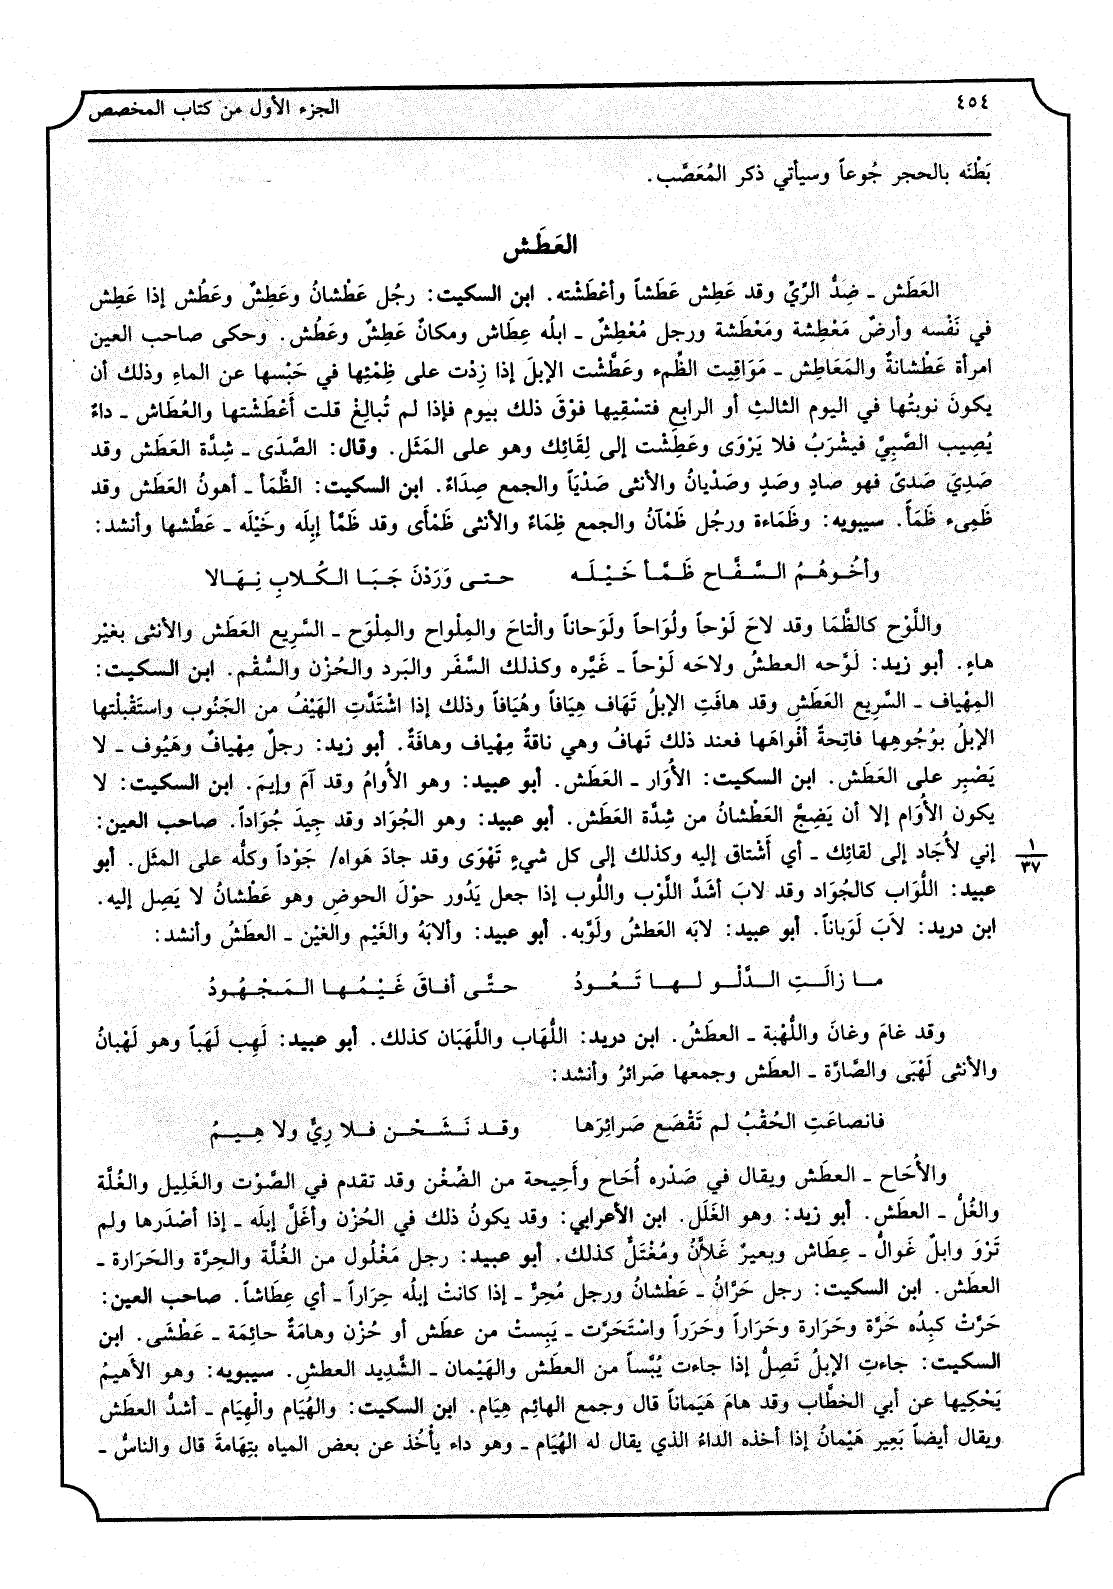 ٤٥٤
الجزء الأول من كتاب المخصص
بَطْنَه بالحجر جُوعاً وسيأتي ذكر المُعَصَّب.
العَطَش
العَطَش ـ ضِدُّ الرِّيِّ وقد عَطِش عَطَشاً وأعْطَشْته. ابن السكيت: رجُل عَطْشانُ وعَطِشٌ وعَطُش إذا عَطِش
في نَفْسه وأرضٌ مَعْطِشة ومَعْطَشة ورجل مُعْطِشٌ ـ ابلُه عِطَاش ومكانٌ عَطِشٌ وعَطُش. وحكى صاحب العين
امرأة عَطْشانةٌ والمَعَاطِش ـ مَوَاقِيت الظِّمء وعَطَّشْت الإبلَ إذا زِدْت على ظِمْئِها في حَبْسها عن الماءِ وذلك أن
يكونَ نوبتُها في اليوم الثالثِ أو الرابعِ فتسْقِيها فوْقَ ذلك بيوم فإذا لم تُبالِغْ قلت أَعْطَشْتها والعُطَاش ـ داءٌ
يُصِيب الصَّبِيَّ فيشْرَبُ فلا يَرْوَى وعَطِشْت إلى لِقَائِك وهو على المَثَل. وقال: الصَّدَى ـ شِدَّة العَطَش وقد
صَدِيَ صَدىً فهو صادٍ وصَدٍ وصَدْيانُ والأنثى صَدْيَاً والجمع صِدَاءٌ. ابن السكيت: الظَّمَأ ـ أهونُ العَطَش وقد
ظَمِىء ظَمَأً. سيبويه: وظَمَاءة ورجُل ظَمْآنُ والجمع ظِمَاءٌ والأنثى ظَمْأَى وقد ظَمَّأ إبِلَه وخَيْلَه ـ عَطَّشها وأنشد:
وأخُوهُمُ السَّفَّاح ظَمَّأ خَيْلَه حتى وَرَدْنَ جَبَا الكُلابِ نِهَالا
واللَّوْح كالظَّمَا وقد لاحَ لَوْحاً ولُوَاحاً ولَوَحاناً والْتاحَ والمِلْواح والمِلْوَح ـ السَّرِيع العَطَش والأنثى بغيْر
هاءٍ. أبو زيد: لَوَّحه العطشُ ولاحَه لَوْحاً ـ غَيَّره وكذلك السَّفَر والبَرد والحُزْن والسُّقْم. ابن السكيت:
المِهْياف ـ السَّرِيع العَطَشِ وقد هافَتِ الإبلُ تَهَاف هِيَافاً وهُيَافاً وذلك إذا اشْتَدَّتِ الهَيْفُ من الجَنُوب واستَقْبلْتها
الإبلُ بوُجُوهِها فاتِحةً أفْواهَها فعند ذلك تَهافُ وهي ناقةٌ مِهْياف وهافَةٌ. أبو زيد: رجلٌ مِهْيافٌ وهَيُوف ـ لا
يَصْبِر على العَطَش. ابن السكيت: الأُوَار ـ العَطَش. أبو عبيد: وهو الأُوامُ وقد آمَ وإيمَ. ابن السكيت: لا
يكون الأُوَام إلا أن يَضِجَّ العَطْشانُ من شِدَّة العَطَش. أبو عبيد: وهو الجُوَاد وقد جِيدَ جُوَاداً. صاحب العين:
إني لأُجَاد إلى لقائِك ـ أي أشْتاق إليه وكذلك إلى كل شيءٍ تَهْوَى وقد جادَ هَواه/ جَوْداً وكلُّه على المثَل. أبو
١
٣٧
عبيد: اللُّوَاب كالجُوَاد وقد لابَ أشَدَّ اللَّوْب واللُّوب إذا جعل يَدُور حوْلَ الحوضِ وهو عَطْشانُ لا يَصِل إليه.
ابن دريد: لاَبَ لَوَباناً. أبو عبيد: لابَه العَطشُ ولَوَّبه. أبو عبيد: وألابَهُ والغَيْم والغيْن ـ العطَشُ وأنشد:
ما زالَتِ الدَّلْو لها تَعُودُ حتَّى أفاقَ غَيْمُها المَجْهُودُ
وقد غامَ وغانَ واللُّهْبة ـ العطَشُ. ابن دريد: اللُّهَاب واللَّهَبَان كذلك. أبو عبيد: لَهِب لَهَباً وهو لَهْبانُ
والأنثى لَهْبَى والصَّارَّة ـ العطَش وجمعها صَرائرُ وأنشد:
فانصاعَتِ الحُقْبُ لم تَقْصَع صَرائِرَها وقد نَشَحْن فلا رِيٌّ ولا هِيمُ
والأُحَاح ـ العطَش ويقال في صَدْره أُحَاح وأَحِيحة من الضِّغْن وقد تقدم في الصَّوْت والغَلِيل والغُلَّة
والغُلُّ ـ العطَش. أبو زيد: وهو الغَلَل. ابن الأعرابي: وقد يكونُ ذلك في الحُزْن وأغَلَّ إبلَه ـ إذا أصْدَرها ولم
تَرْوَ وابلٌ غَوالُّ ـ عِطَاش وبعيرٌ غَلاَّنُ ومُغْتَلٌّ كذلك. أبو عبيد: رجل مَغْلُول من الغُلَّة والحِرَّة والحَرَارة ـ
العطَش. ابن السكيت: رجل حَرَّانُ ـ عَطْشانُ ورجل مُحِرٌّ ـ إذا كانتْ إبلُه حِرَاراً ـ أي عِطَاشاً. صاحب العين:
حَرَّتْ كبِدُه حَرَّة وحَرَارة وحَرَاراً وحَرَراً واسْتَحَرَّت ـ يَبِستْ من عطَش أو حُزْن وهامَةٌ حائِمَة ـ عَطْشَى. ابن
السكيت: جاءتِ الإبلُ تَصِلُّ إذا جاءت يُبَّساً من العطَش والهَيْمان ـ الشَّدِيد العطشِ. سيبويه: وهو الأَهيمُ
يَحْكِيها عن أبي الخطَّاب وقد هامَ هَيَماناً قال وجمع الهائِم هِيَام. ابن السكيت: والهُيَام والْهِيَام ـ أشدُّ العطَش
ويقال أيضاً بَعِير هَيْمانُ إذا أخذه الداءُ الذي يقال له الهُيَام ـ وهو داء يأْخُذ عن بعض المياه بتِهامةَ قال والناسُ ـ